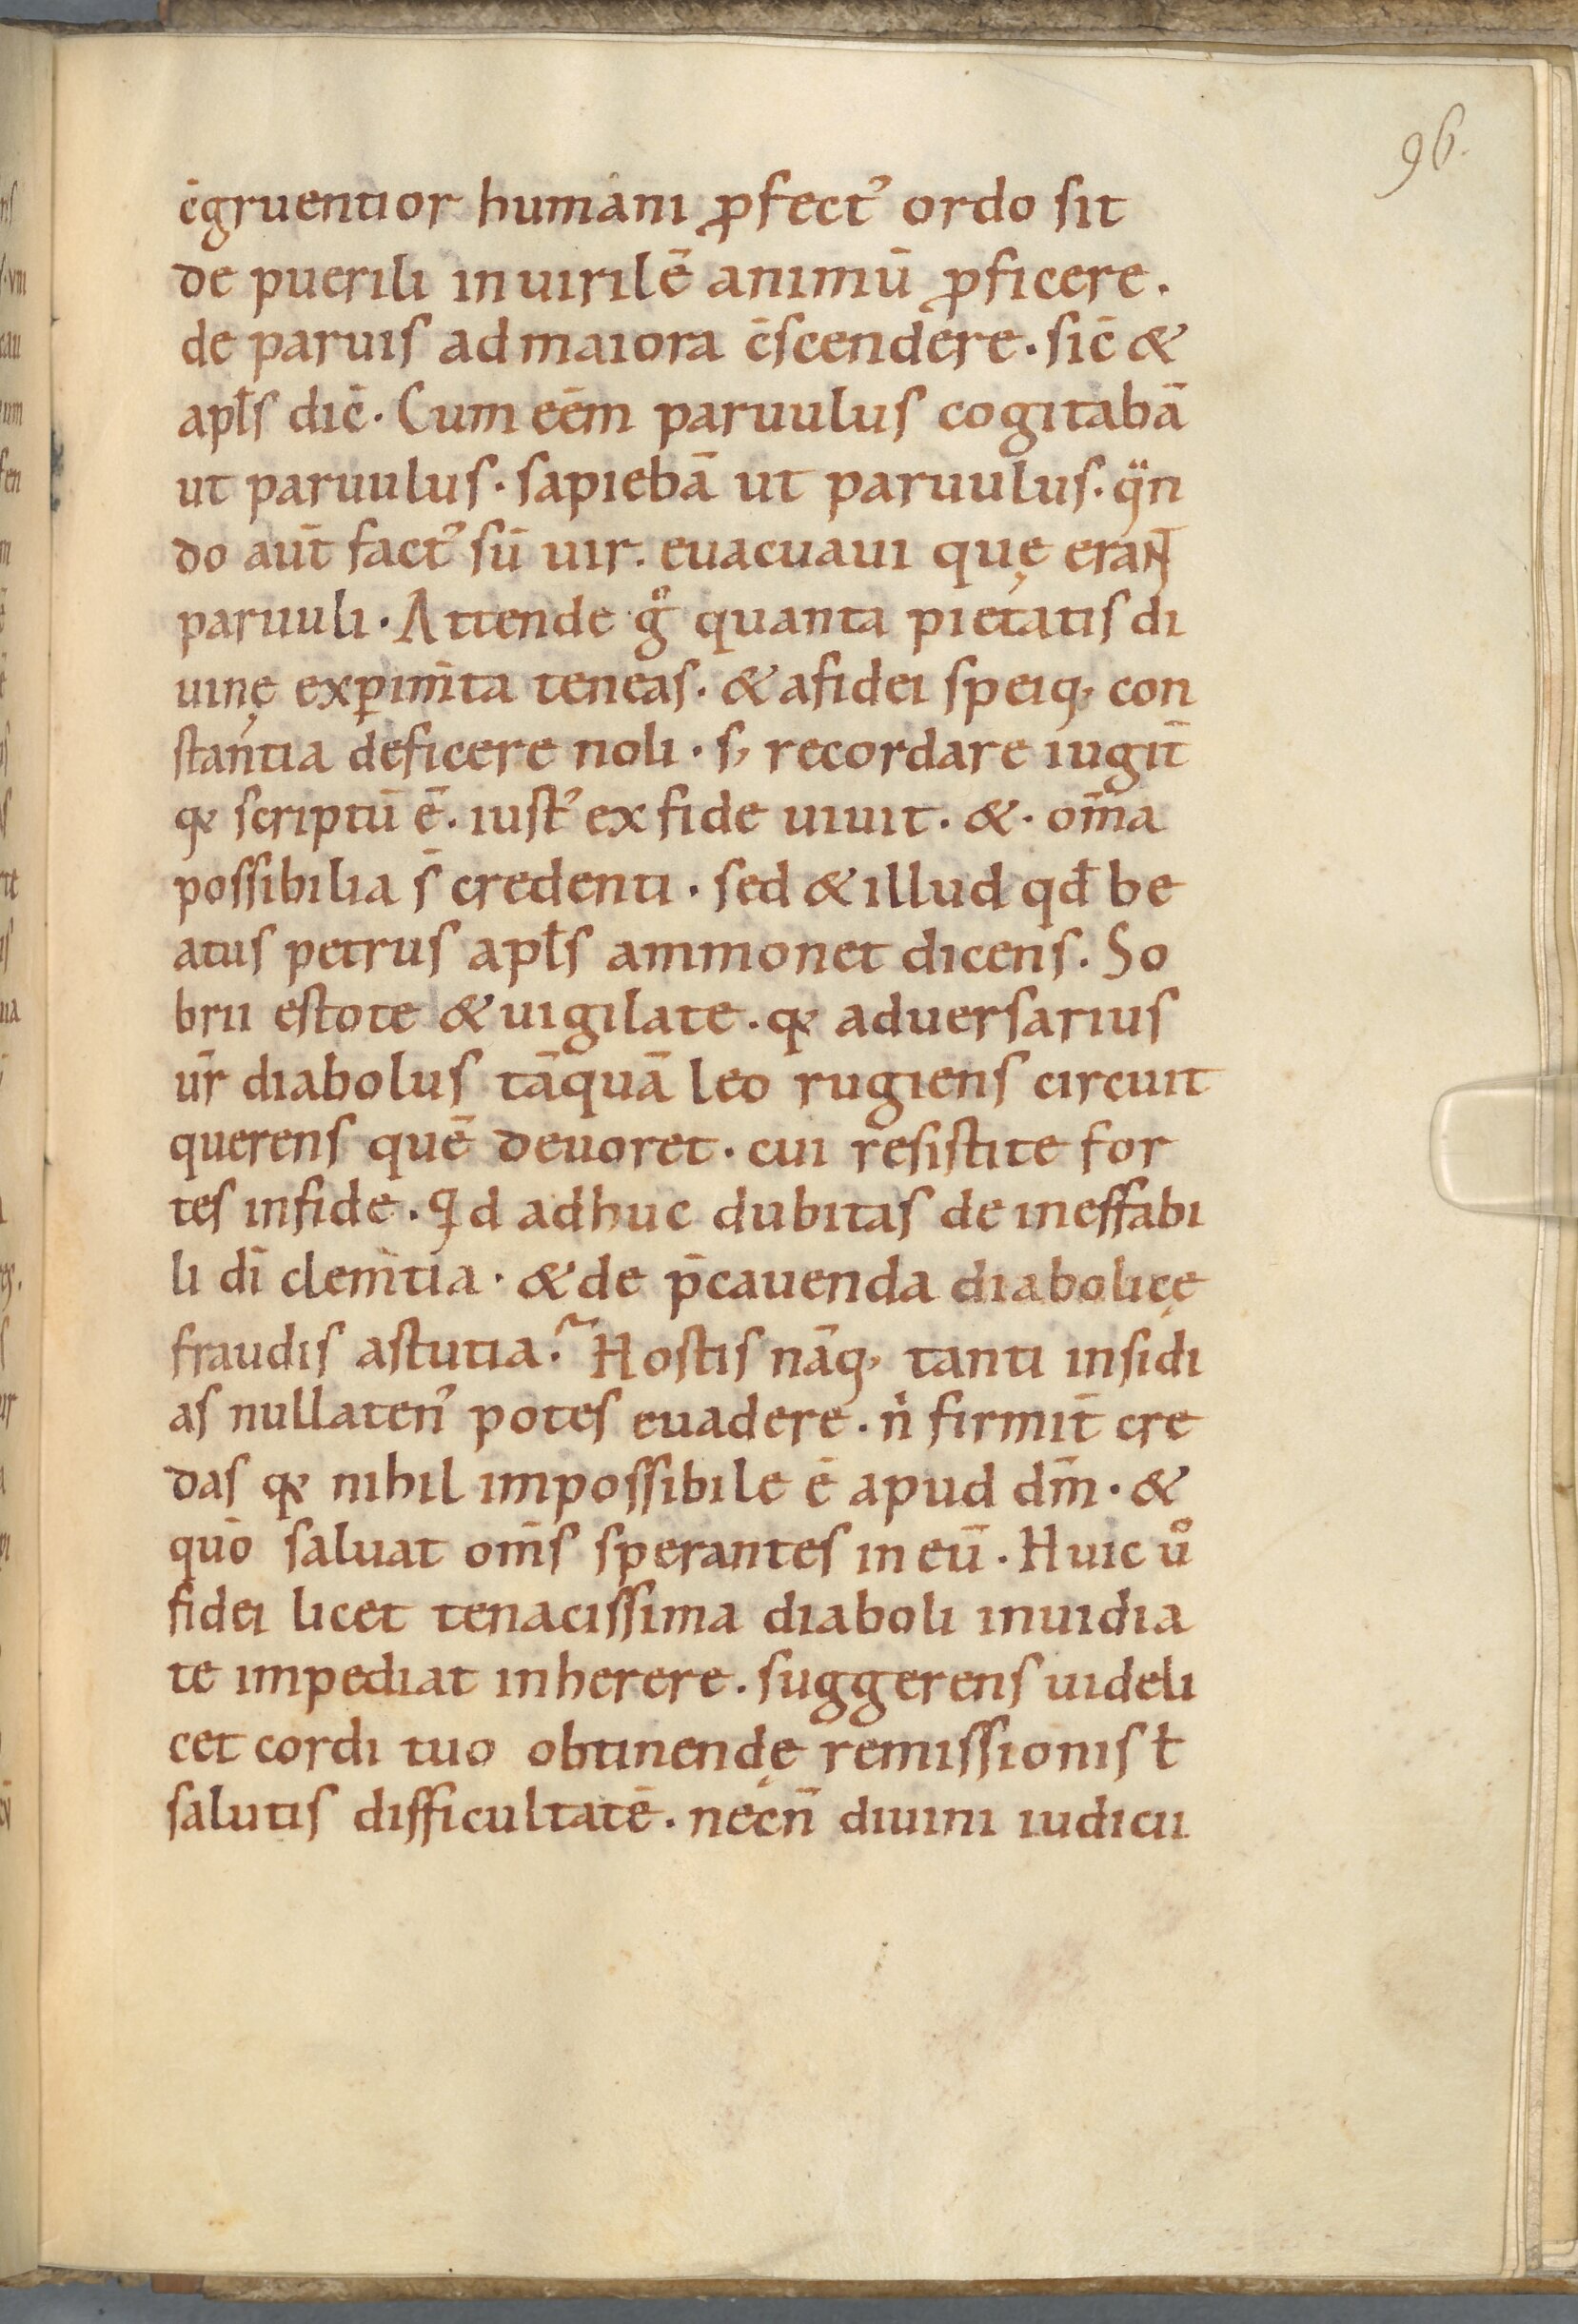 96.
c̄gruentior humani ꝓfect᾿ ordo sit
de puerili in uirilē animū ꝓficere.
de paruis ad maiora c̄scendere. sic̄ &
apl̄s dic̄. Cum eēm paruulus cogitabā
ut paruulus. sapiebā ut paruulus. qn̄
do aut̄ fact᾿ sū uir. euacuaui quę eran̄t
paruuli. Attende gͦ quanta pietatis di
uinę exꝑim̄ta teneas. & a fidei speiq; con
stantia deficere noli. s; recordare iugit̄
qꝛ scriptū ē. iust᾿ ex fide uiuit. &. om̄a
possibilia s̄ credenti. sed & illud qd̄ be
atus petrus apl̄s ammonet dicens. So
brii estote & uigilate. qꝛ aduersarius
ur̄ diabolus tāquā leo rugiens circuit
querens quē deuoret. cui resistite for
tes in fide. Qd adhuc dubitas de ineffabi
li dī clem̄tia. & de p̄cauenda diabolicę
fraudis astutia.~ Hostis nāq; tanti insidi
as nullaten᾿ potes euadere. nͥ firmit̄ cre
das qꝛ nihil impossibile ē apud dm̄. &
quō saluat om̄s sperantes in eū. Huic uͦ
fidei licet tenacissima diaboli inuidia
te impediat inherere. suggerens uideli
cet cordi tuo obtinendę remissionis ł
salutis difficultatē. necn̄ diuini iudicii